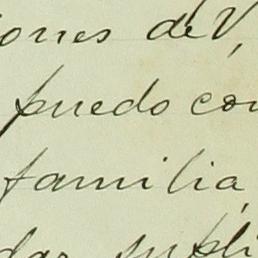 iones de V,
puedo con
familia
dar supli